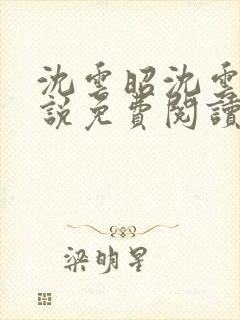 沈雲昭沈雲
說免費閱讀
梁明星